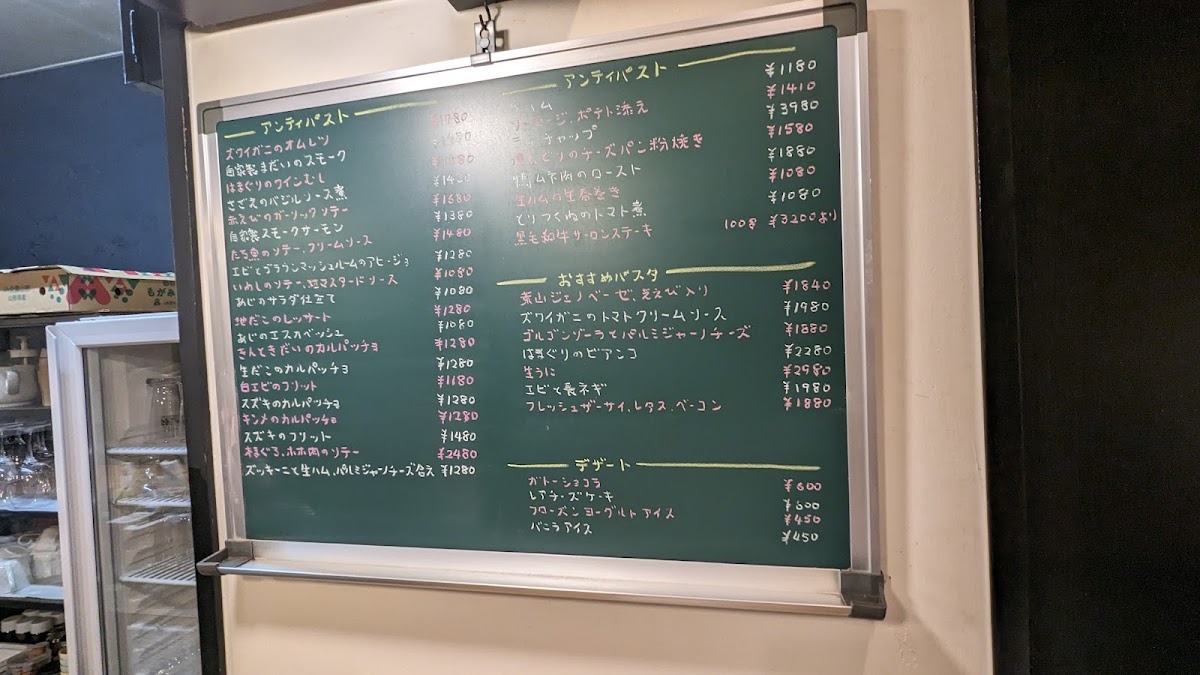 アンティパスト
ズワイガニのオムレツ ¥1780
自家製まだいのスモーク
はまぐりのワインむし
さざえのバジルソース煮 ¥1420
赤えびのガーリックソテー ¥1680
自家製スモークサーモン ¥1380
たち魚のソテー、クリームソース ¥1480
エビとブラウンマッシュルームのアヒージョ ¥1280
いわしのソテー、粒マスタードソース ¥1080
あじのサラダ仕立て ¥1080
地だこのレッサート ¥1280
あじのエスカベッシュ ¥1080
きんときだいのカルパッチョ ¥1280
生だこのカルパッチョ ¥1280
白エビのフリット ¥1180
スズキのカルパッチョ ¥1280
キンメのカルパッチョ ¥1280
スズキのフリット ¥1480
本まぐろ、ホホ肉のソテー ¥2480
ズッキーニと生ハム、パルミジャーノチーズ合え ¥1280
アンティパスト
ハム ¥1180
ポテト添え ¥1410
チャップ ¥3980
のチーズパン粉焼き ¥1580
鴨ムネ肉のロースト ¥1880
生ハムの生春巻き ¥1080
とりつくねのトマト煮 ¥1080
黒毛和牛サーロンステーキ 100g ¥3200より
おすすめパスタ
葉山ジェノベーゼ、芝えび入り ¥1840
ズワイガニのトマトクリームソース ¥1980
ゴルゴンゾーラとパルミジャーノチーズ ¥1880
はまぐりのビアンコ ¥2280
生うに ¥2980
エビと長ネギ ¥1980
フレッシュザーサイ、レタス、ベーコン ¥1880
デザート
ガトーショコラ ¥600
レアチーズケーキ ¥500
フローズンヨーグルトアイス ¥450
バニラアイス ¥450
もがみ